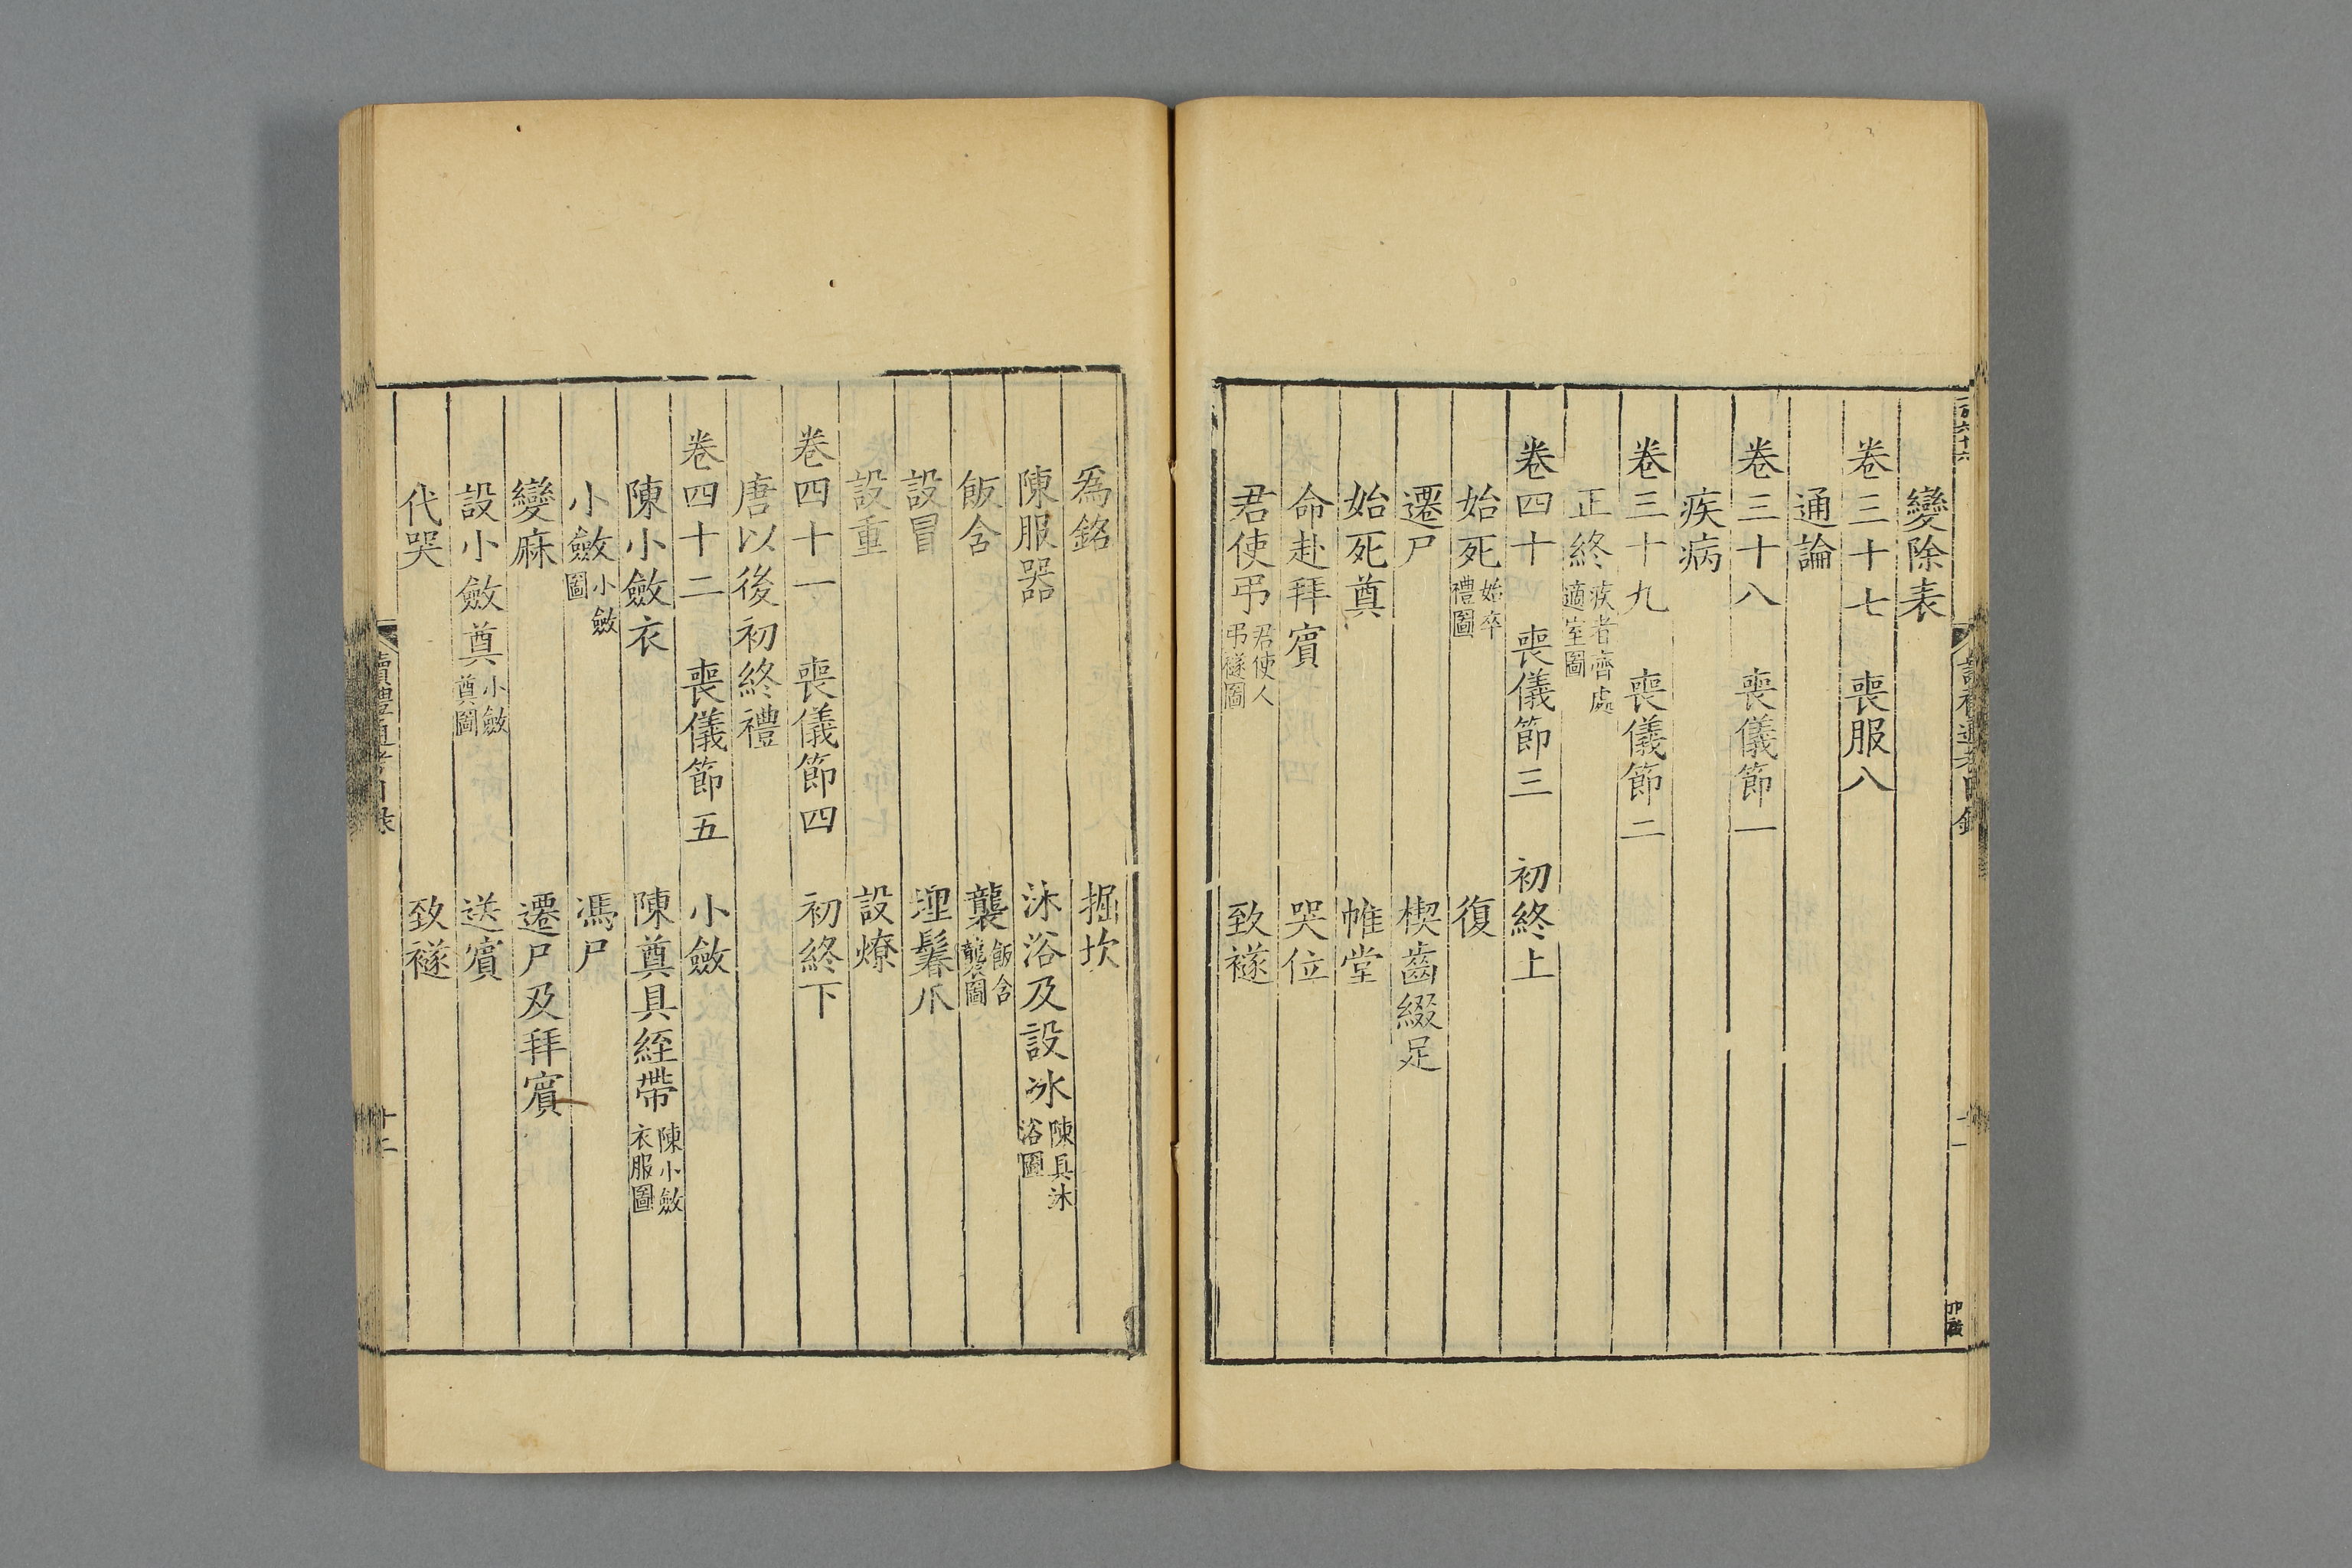 變除表
卷三十七　喪服八
通論
卷三十八　喪儀節一
疾病
卷三十九　喪儀節二
正終疾者齊處適室圖
卷四十　喪儀節三　初終上
始死始卒禮圖　復
遷尸　楔齒綴足
始死奠　帷堂
命赴拜賓　哭位
君使弔君使人弔襚圖　致襚
爲銘　掘坎
陳服器　沐浴及設冰陳具沐浴圖
飯含　襲飯含襲圖
設冒　埋鬊爪
設重　設燎
卷四十一　喪儀節四　初終下
唐以後初終禮
卷四十二　喪儀節五　小斂
陳小斂衣　陳奠具絰帶陳小斂衣服圖
小斂小斂圖　馮尸
變麻　遷尸及拜賓
設小斂奠小斂奠圖　送賓
代哭　致襚
讀禮通考目录
十二